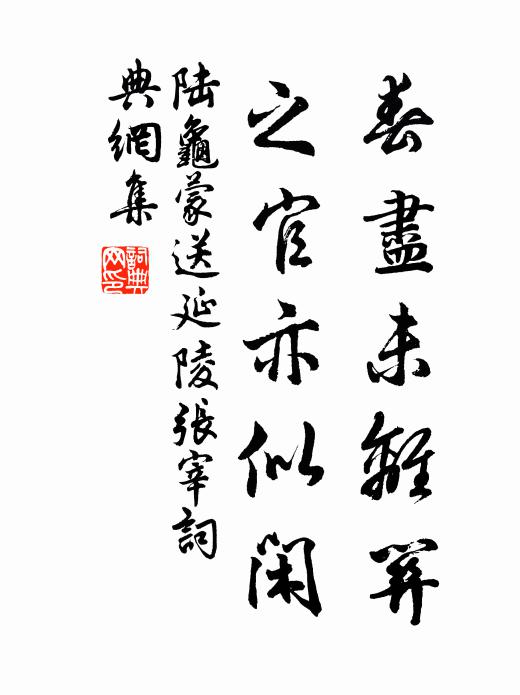 春盡未離關
之官亦似閑
陸龜蒙送延陵張宰詞
典網集
詞典
网印